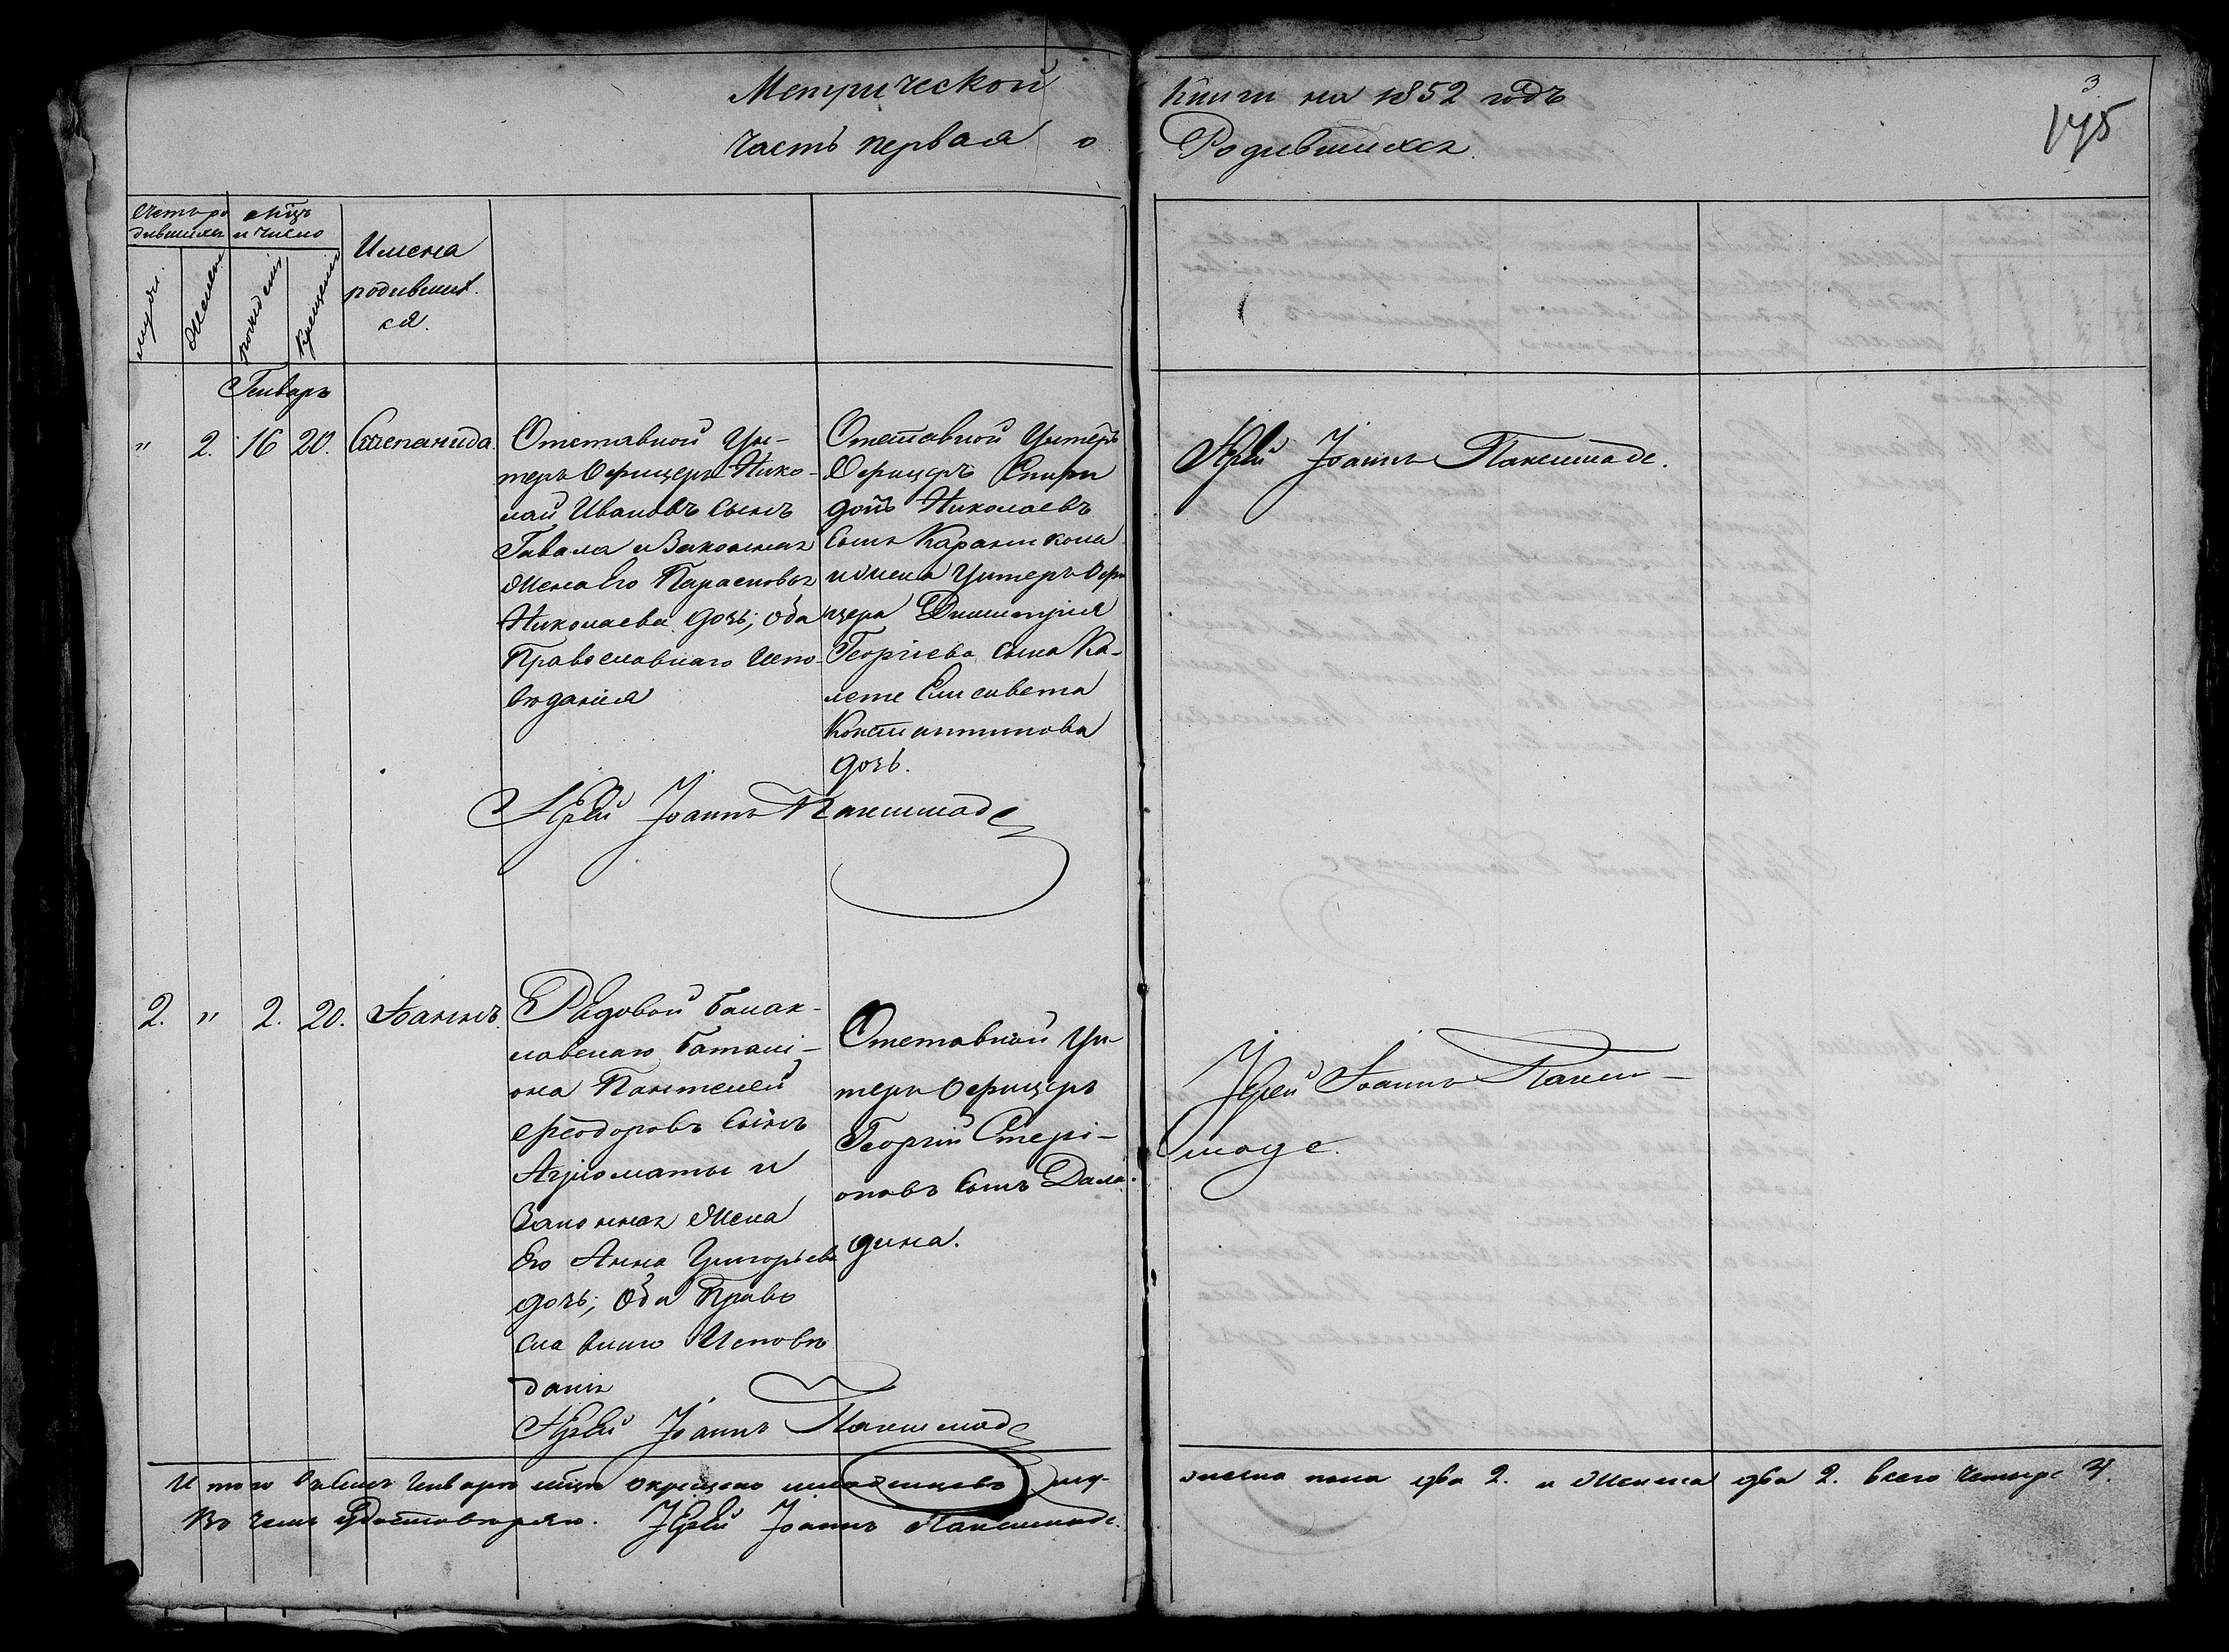 Метрической книги на 1852 годъ
3
175
часть первая о Родившихся.
Счетъ ро
дившихся
мѣцъ
и число
Имена
родивших
ся.
мужск.
женск.
рожденія
крещенія
Генварь
" 2. 16 20. Степанида.
Отставной Ун-
теръ Офицеръ Нико-
лай Ивановъ сынъ
Гавала и Законная
жена его Параскова
Николаева дочь; оба
Православнаго Испо-
вѣданія
Отставной Унтеръ
Офицеръ Спири
донъ Николаевъ
сынъ
и жена Унтеръ Офи
цера Димитрія
Георгіева сына Ка-
лете Елисавета
Константинова
дочь.
Іерей Іоаннъ Паксимаде.
Іерей Іоаннъ Паксимаде
2. " 2. 20. Іоаннъ.
Рядовой Балак-
лавскаго Баталі-
она Пантелей
Феодоровъ сынъ
Агріоматы и
Законная жена
Его Анна Григорьева
дочь; Оба Право
славнаго Исповѣ
данія
Отставной Ун-
теръ Офицеръ
Георгій Стері-
оновъ сынъ Дала-
дина.
Іерей Іоаннъ Пакси-
маде.
Іерей Іоаннъ Паксимаде
Итого въ семъ Генварѣ мѣцѣ окрещено младенцовъ му-
жеска пола два 2. и Женска два 2. всего четыре 4.
Въ чемъ удостовѣряю. Іерей Іоаннъ Паксимаде.